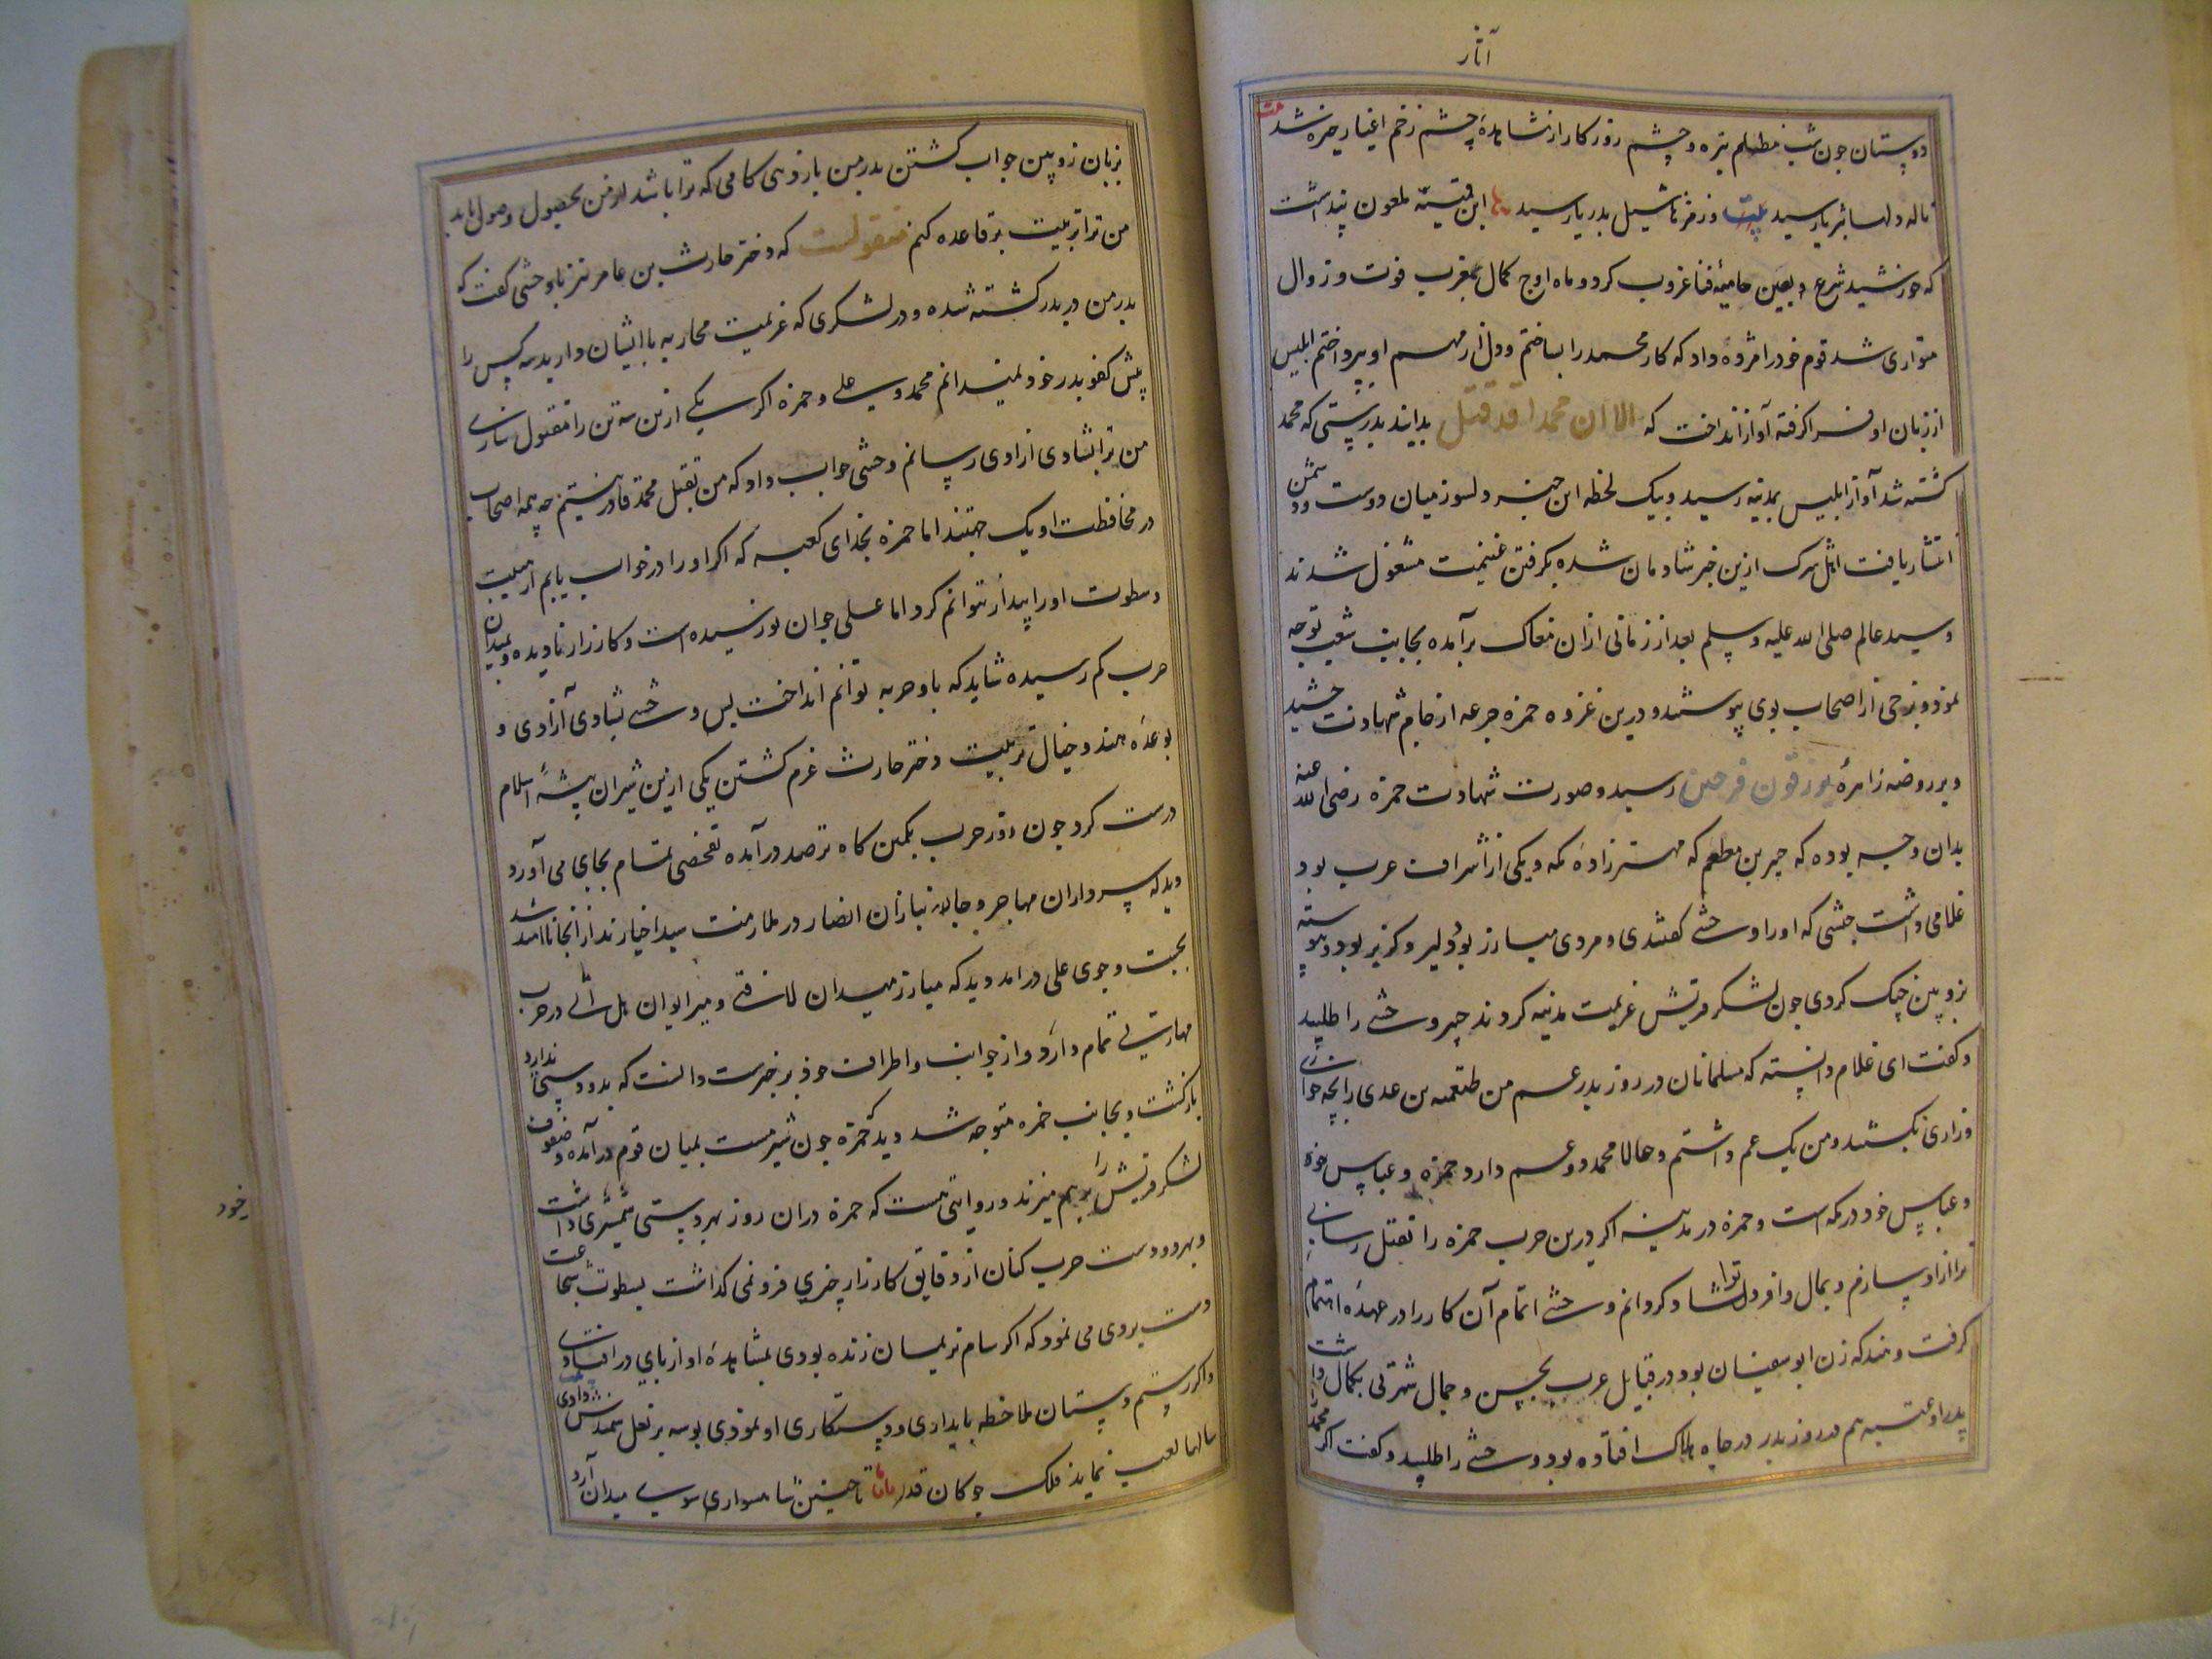 آثار
دوستان چون شب مظلم تیره و چشم روزکار از مشاهدهٔ چشم زخم اغیار خیره شد
ناله دلها بثریا رسید بیت وز مژها سیل بدریا رسید ابن قمیئه ملعون پنداشت
که خورشید شرع بعین حامیهٔ فنا غروب کرد و ماه اوج کمال بمغرب فوت و زوال
متواری شد قوم خود را مژده داد که کار محمد را بساختم و دل از مهم او بپرداختم ابلیس
از زبان او فرا کرفته آواز انداخت که الا ان محمدا قد قتل بدانید بدرستی که محمد
کشته شد آواز ابلیس بمدینه رسید و بیک لحظه این خبر دلسوز میان دوست و دشمن
انتشار یافت اهل شرک ازین خبر شادمان شده بکرفتن غنیمت مشغول شدند
و سید عالم صلی الله علیه و سلم بعد از زمانی ازان مغاک برآمده بجانب شعب توجه
نمود و برخی از اصحاب بوی پیوستند و درین غزوه حمزه جرعه از جام شهادت چشید
و بر روضه زاهرهٔ یرزقون فرحین رسید و صورت شهادت حمزه رضی الله عنه
بدان وجه بوده که جبیر بن مطعم که مهتر زادهٔ مکه و یکی از اشراف عرب بود
غلامی داشت حبشی که او را وحشی کفتندی و مردی مبارز بود دلیر و کربز بود و پیوسته
بزوبین جنک کردی چون لشکر قریش عزیمت مدینه کردند جبیر وحشی را طلبید
و کفت ای غلام دانسته که مسلمانان در روز بدر عم من طعیمه بن عدی را بچه خواری
و زاری بکشتند و من یک عم داشتم و حالا محمد دو عم دارد حمزه و عباس
و عباس خود در مکه است و حمزه در مدینه اکر درین حرب حمزه را بقتل رسانی
ترا آزاد سازم و بمال وافر دل ترا شاد کردانم وحشی اتمام آن کار را در عهدهٔ اهتمام
کرفت و هند که زن ابو سفیان بود در قبایل عرب بحسن و جمال شهرتی بکمال داشت
پدر او عتبه هم در روز بدر در چاه هلاک افتاده بود وحشی را طلبید و کفت اکر محمد را
بزبان زوبین جواب کشتن پدر من باز دهی کامی که ترا باشد از من بحصول وصول یابد
من ترا تربیت بر قاعده کنم منقولست که دختر حارث بن عامر نیز با وحشی کفت که
پدر من در بدر کشته شده و در لشکری که عزیمت محاربه با ایشان دارید سه کس را
پیش کفو پدر خود نمیدانم محمد و علی و حمزه اکر یکی ازین سه تن را مقتول سازی
من ترا بشادی آزادی رسانم وحشی جواب داد که من بقتل محمد قادر نیستم چه همه اصحاب
در محافظت او یک جهتند اما حمزه بخدای کعبه که اکر او را در خواب یابم از هیبت
و سطوت او را بیدار نتوانم کرد اما علی جوان نورسیده است و کارزار نادیده و بمیدان
حرب کم رسیده شاید که با او حربه توانم انداخت پس وحشی بشادی آزادی و
بوعدهٔ هند و خیال تربیت دختر حارث عزم کشتن یکی ازین شیران بیشهٔ اسلام
درست کرد چون روز حرب بکمین کاه ترصد درآمده تفحصی تمام بجای می آورد
دید که سرداران مهاجر و جانبازان انصار در ملازمت سید اخیارند از آنجا ناامید شد
بجست و جوی علی درآمد دید که مبارز میدان لافتی و میر ایوان هل اتی در حرب
مهارتی تمام دارد و از جوانب و اطراف خود بر خبرست دانست که بدو دستی ندارد
بازکشت و بجانب حمزه متوجه شد دید که حمزه چون شیر مست بمیان قوم درآمده و صفوف
لشکر قریش را برهم میزند و در روایتی هست که حمزه دران روز بهر دستی شمشیری داشت
و بهر دو دست حرب کنان از دقایق کارزار چیزی فرو نمی کذاشت بسطوت شجاعت
دست بردی می نمود که اکر سام نریمان زنده بودی بمشاهدهٔ او از پای در افتادی
و اکر رستم دستان ملاحظه پایداری و دستکاری او نمودی بوسه بر نعل سمندش دادی
سالها لعب نماید فلک چوکان قد تا چنین شاهسواری سوی میدان آرد
خود